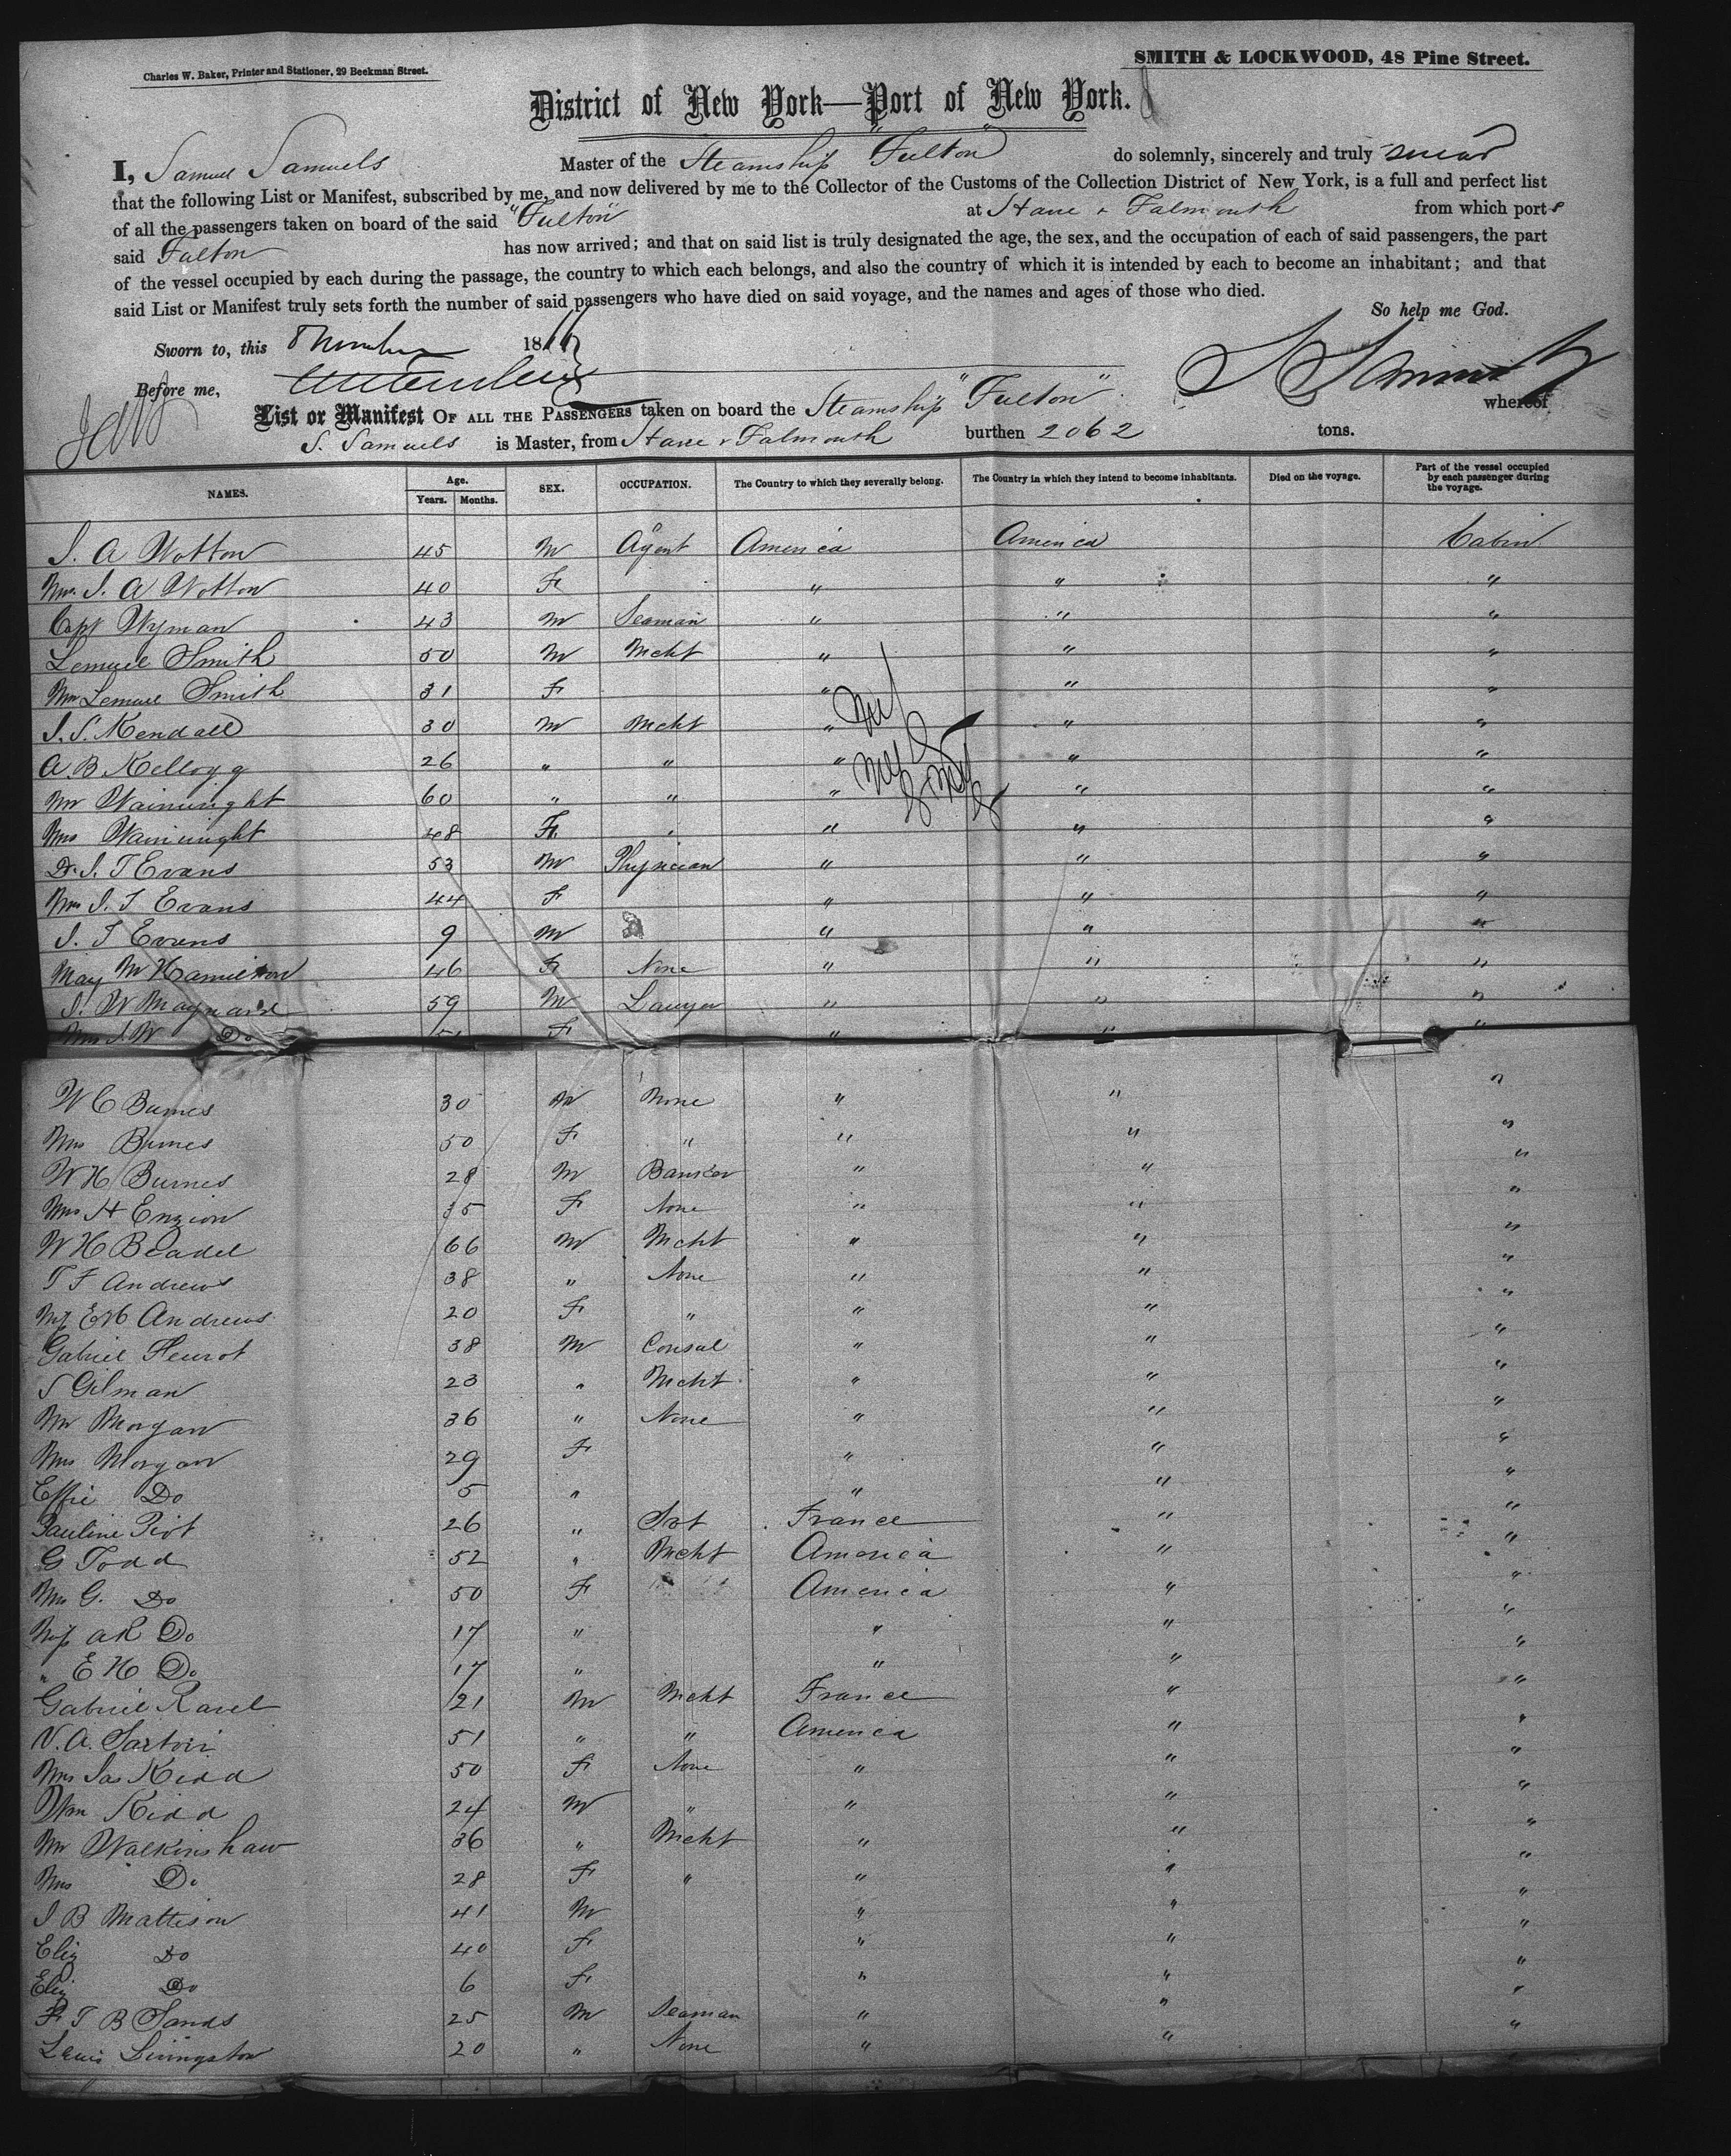 Charles W. Baker, Printer and Stationer, 29 Beekman Street.
SMITH & LOCKWOOD, 48 Pine Street.
District of New York—Port of New York.
I, Samuel Samuels Master of the Steamship "Fulton" do solemnly, sincerely and truly swear
that the following List or Manifest, subscribed by me, and now delivered by me to the Collector of the Customs of the Collection District of New York, is a full and perfect list
of all the passengers taken on board of the said "Fulton" at Havre & Falmouth from which ports
said Fulton has now arrived; and that on said list is truly designated the age, the sex, and the occupation of each of said passengers, the part
of the vessel occupied by each during the passage, the country to which each belongs, and also the country of which it is intended by each to become an inhabitant; and that
said List or Manifest truly sets forth the number of said passengers who have died on said voyage, and the names and ages of those who died.
So help me God.
Sworn to, this 8 November 186
Before me, S Samuels
List or Manifest OF ALL THE PASSENGERS taken on board the Steamship "Fulton" whereof
S. Samuels is Master, from Havre & Falmouth burthen 2062 tons.
NAMES. Age. Years. Months. SEX. OCCUPATION. The Country to which they severally belong. The Country in which they intend to become inhabitants. Died on the voyage. Part of the vessel occupied by each passenger during the voyage.
J. A Wotton 45 M Agent America America Cabin
Mrs. J. A Wotton 40 F " " "
Capt Wyman 43 M Seaman " " "
Lemuel Smith 50 M Mcht " " "
Mrs Lemuel Smith 31 F " " "
J. S. Kendall 30 M Mcht " " "
A. B. Kellogg 26 " " " " "
Mr Wainwright 60 " " " " "
Mrs Wainwright 48 F " " "
Dr. J. T Evans 53 M Physician " " "
Mrs J. T Evans 44 F " " "
J. T Evens 9 M " " "
May M Hamilton 46 F None " " "
J. W Maynard 59 M Lawyer " " "
Mrs J. W Do F " " "
W C Burnes 30 M None " " "
Mrs Burnes 50 F " " " "
W H Burnes 28 M Banker " " "
Mrs H Enzion 35 F None " " "
W H Beadel 66 M Mcht " " "
T F Andrews 38 " None " " "
Miss E H Andrews 20 F " " " "
Gabriel Fleurot 38 M Consul " " "
S Gilman 23 " Mcht " " "
Mr Morgan 36 " None " " "
Mrs Morgan 29 F " " "
Effie Do 5 " " " "
Pauline Piot 26 " Svt France " "
G Todd 52 " Mcht America " "
Mrs G. Do 50 F America " "
Miss A R Do 17 " " " "
" E H Do 17 " " " "
Gabriel Ravel 21 M Mcht France " "
V. A. Sartori 51 " " America " "
Mrs Jas Kidd 50 F None " " "
Wm Kidd 24 M " " " "
Mr Walkinshaw 36 " Mcht " " "
Mrs Do 28 F " " " "
J B Mattison 41 M " " "
Eliz Do 40 F " " "
Eliz Do 6 F " " "
F T B Sands 25 M Seaman " " "
Lewis Livingston 20 " None " " "